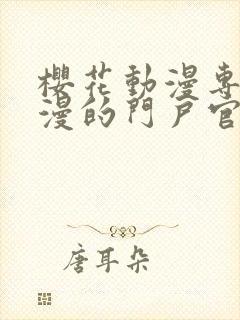 櫻花動漫專
漫的門戶官
唐耳朵